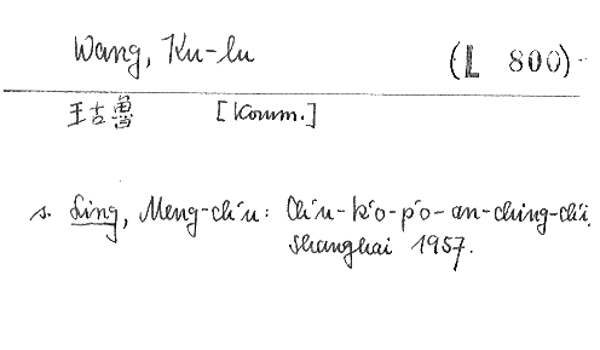 Wang, Ku-lu (L 800)
王古魯 [Komm.]
s. Ling, Meng-ch'u: Ch'u-k'o-p'o-an-ching-ch'i.
Shanghai 1957.